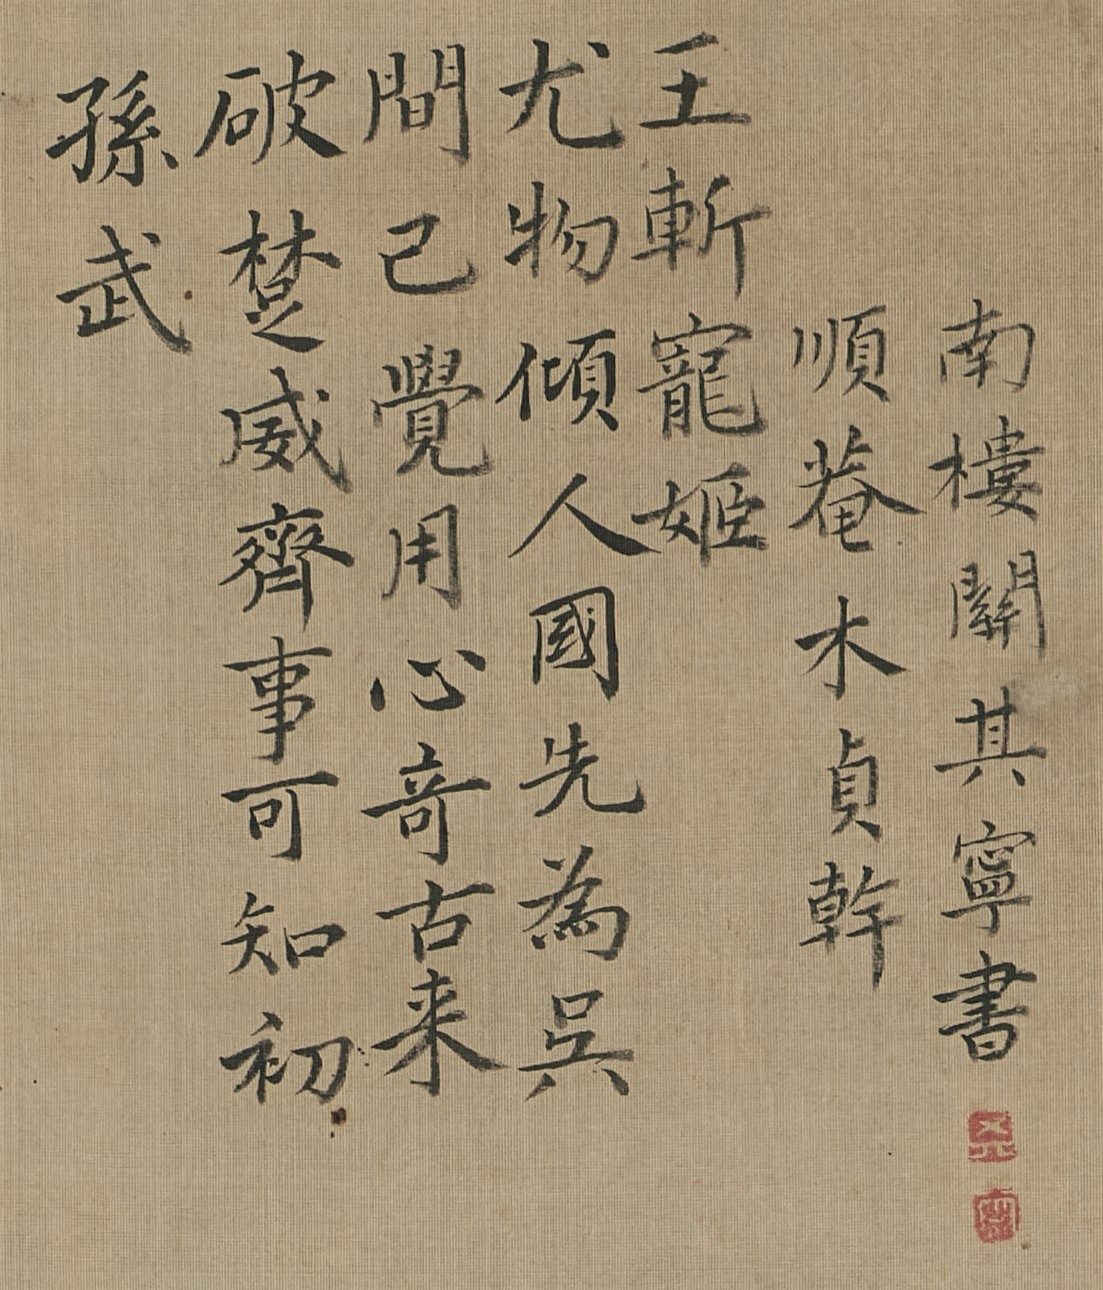 孫武
破楚威齊事可知初
間已覺用心奇古来
尤物傾人國先為吳
王斬寵姬
順菴木貞幹
南樓關其寧書